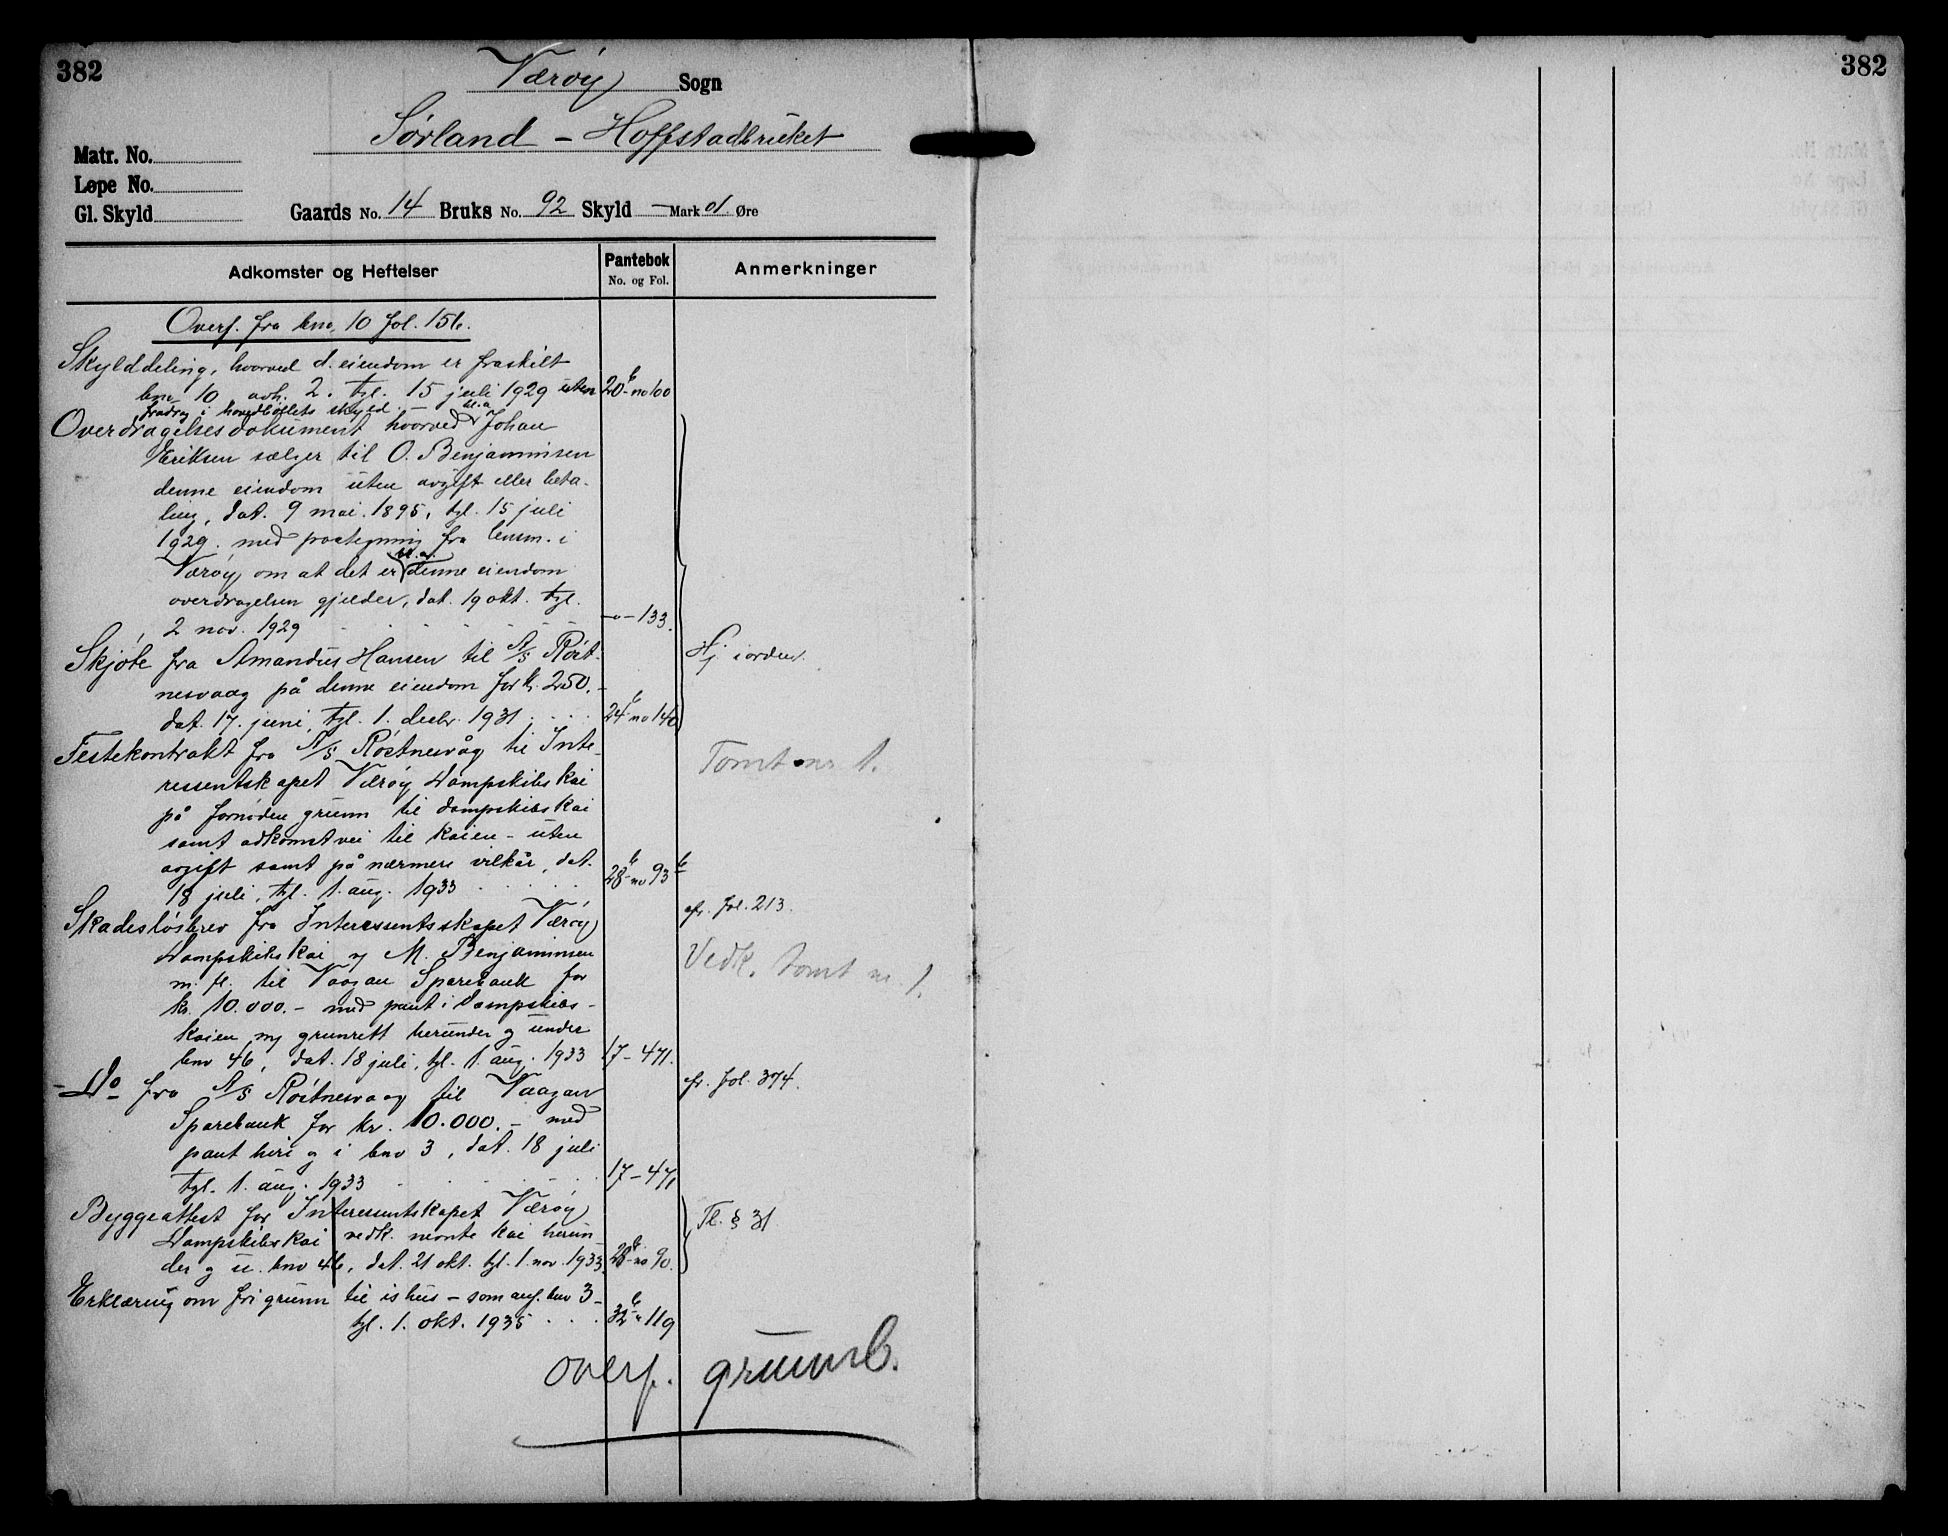 382
382
Værøy Sogn
Sørland – Hoffstadbruket
Matr. No.
Løpe No.
Gl. Skyld
Gaards No. 14 Bruks No. 92 Skyld — Mark 01 Øre
Adkomster og Heftelser
Pantebok
No. og Fol.
Anmerkninger
Overf. fra bno. 10 fol. 156.
Skylddeling, hvorved d. eiendom er fraskilt
bno 10 avh. 2. tgl. 15 juli 1929 uten 20b no 100
fradrag i hovedbølets skyld. —
Overdragelsesdokument hvorved bl.a. Johan
Eriksen sælger til O. Benjaminsen
denne eiendom uten avgift eller beta-
ling, dat. 9 mai 1895, tgl. 15 juli
1929. med paategning fra lensm. i
Værøy om at det er bl.a. denne eiendom
overdragelsen gjelder, dat. 19 okt. tgl.
2 nov. 1929 -"- 133.
Skjøte fra Amandus Hansen til A/S Røst- Hj. i orden.
nesvaag på denne eiendom for kr. 250.-
dat. 17. juni, tgl. 1. desbr. 1931 24b no 140
Festekontrakt fra A/S Røstnesvåg til Inte- Tomt nr 1.
ressentskapet Værøy Dampskibskai
på fornøden grunn til dampskibskai
samt adkomstvei til kaien – uten
avgift samt på nærmere vilkår, dat.
18 juli, tgl. 1. aug. 1933 28b no 93b
Skadesløsbrev fra Interessentsskapet Værøy cfr. fol. 213.
Dampskibskai og M. Benjaminsen Vedk. tomt nr 1.
m. fl. til Vaagan Sparebank for
kr. 10.000.- med pant i dampskibs-
kaien og grunrett herunder og under
bno 46, dat. 18 juli, tgl. 1. aug. 1933 17-471.
- Do fra A/S Røstnesvaag til Vaagan cfr. fol. 374.
Sparebank for kr. 10.000.- med
pant heri og i bno 3, dat. 18 juli
tgl. 1. aug. 1933 17-471
Byggeattest for Interessentskapet Værøy Tl. § 31
Dampskibskai vedk. nevnte kai herun-
der og u. bno 46, dat. 21 okt. tgl. 1. nov. 1933. 28b no 90.
Erklæring om fri grunn til ishus – som anf. bno 3 –
tgl. 1. okt. 1935 32b " 119
overf. grunnb.